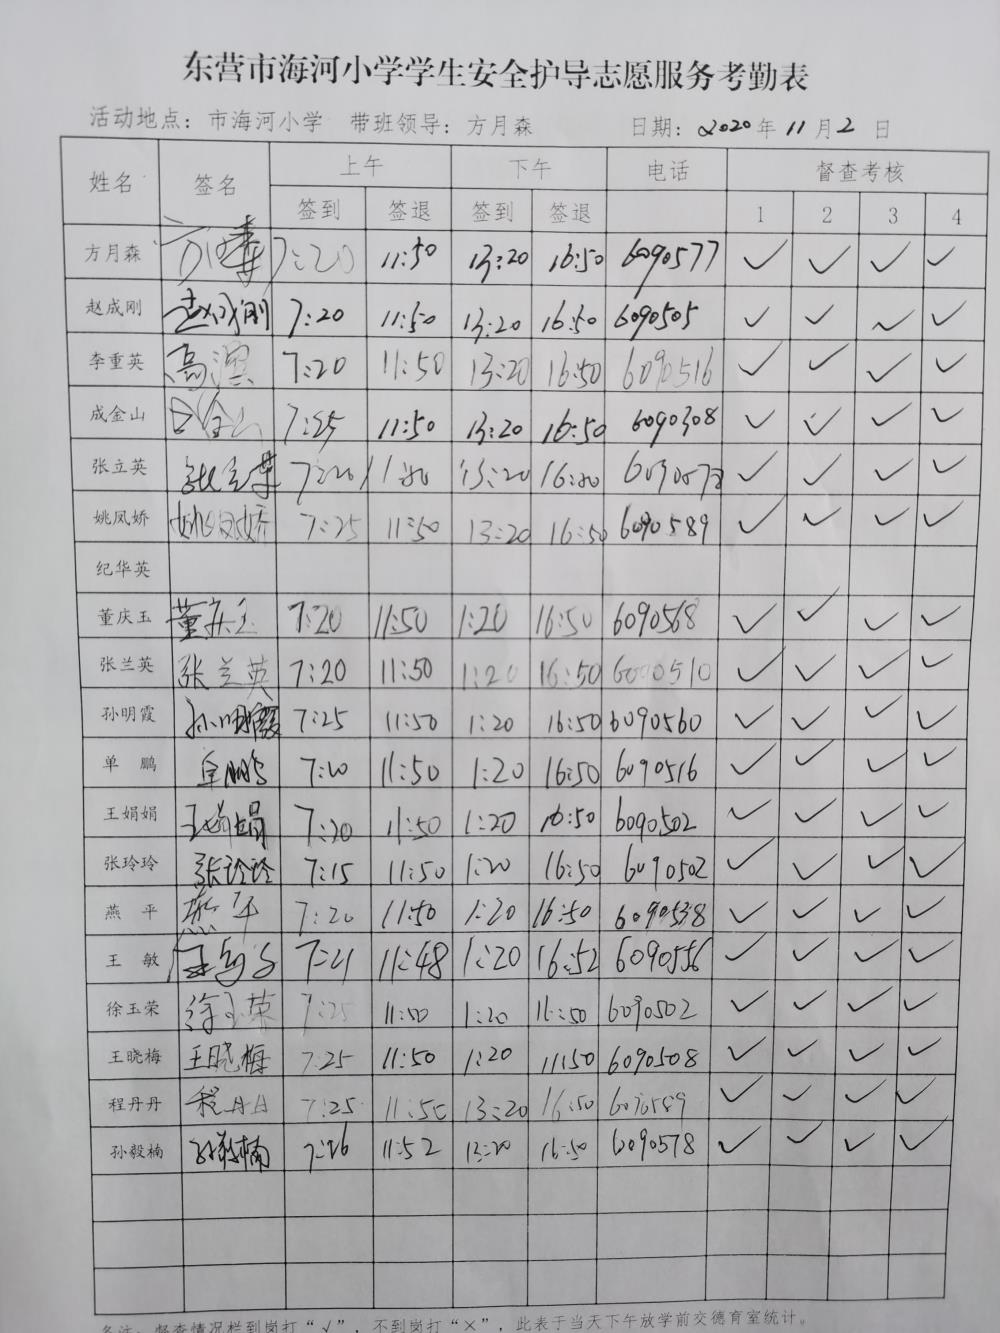 东营市海河小学学生安全护导志愿服务考勤表
活动地点：市海河小学 带班领导：方月森 日期：2020年11月2日
姓名 签名 上午 下午 电话 督查考核
签到 签退 签到 签退 1 2 3 4
方月森 7:20 11:50 13:20 16:50 6090577 ✓ ✓ ✓ ✓
赵成刚 赵成刚 7:20 11:50 13:20 16:50 6090505 ✓ ✓ ✓ ✓
李重英 高滨 7:20 11:50 13:20 16:50 6090516 ✓ ✓ ✓ ✓
成金山 7:25 11:50 13:20 16:50 6090308 ✓ ✓ ✓ ✓
张立英 张立英 7:20 13:20 ✓ ✓ ✓ ✓
姚凤娇 姚凤娇 7:25 11:50 13:20 16:50 6090589 ✓ ✓ ✓ ✓
纪华英
董庆玉 董庆玉 7:20 11:50 1:20 16:50 6090568 ✓ ✓ ✓ ✓
张兰英 张兰英 7:20 11:50 1:20 16:50 6090510 ✓ ✓ ✓ ✓
孙明霞 孙明霞 7:25 11:50 1:20 16:50 6090560 ✓ ✓ ✓ ✓
单 鹏 单鹏 7:20 11:50 1:20 16:50 6090516 ✓ ✓ ✓ ✓
王娟娟 王娟娟 7:20 11:50 1:20 16:50 6090502 ✓ ✓ ✓ ✓
张玲玲 张玲玲 7:15 11:50 1:20 16:50 6090502 ✓ ✓ ✓ ✓
燕 平 燕平 7:20 11:50 1:20 16:50 6090538 ✓ ✓ ✓ ✓
王 敏 7:21 11:48 1:20 16:52 6090556 ✓ ✓ ✓ ✓
徐玉荣 徐玉荣 7:25 11:50 1:20 16:50 6090502 ✓ ✓ ✓ ✓
王晓梅 王晓梅 7:25 11:50 1:20 6090508 ✓ ✓ ✓ ✓
程丹丹 程丹丹 7:25 11:50 13:20 16:50 6090589 ✓ ✓ ✓ ✓
孙毅楠 孙毅楠 7:26 11:52 13:20 16:50 6090578 ✓ ✓ ✓ ✓
备注：督查情况栏到岗打“√”，不到岗打“×”，此表于当天下午放学前交德育室统计。